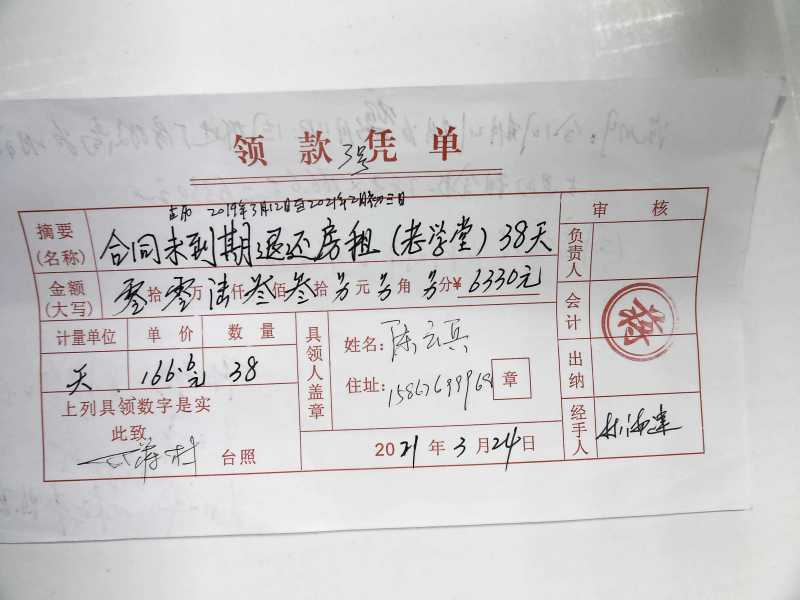 领款凭单
3号
2019年3月12日至2021年2月初三日
摘要(名称) 合同未到期退还房租(老学堂)38天
金额(大写) 零拾零万陆仟叁佰叁拾另元另角另分¥6330元
计量单位 单价 数量
天 166.6元 38
上列具领数字是实
此致
村 台照
具领人盖章
姓名:陈云兵
住址:15867699968 章
2021年3月24日
审核
负责人
会计
出纳
经手人